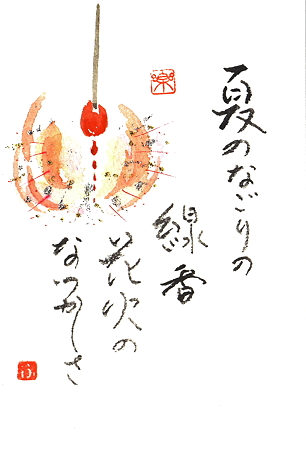 夏のなごりの
線香
花火の
なつかしさ
楽
ふ